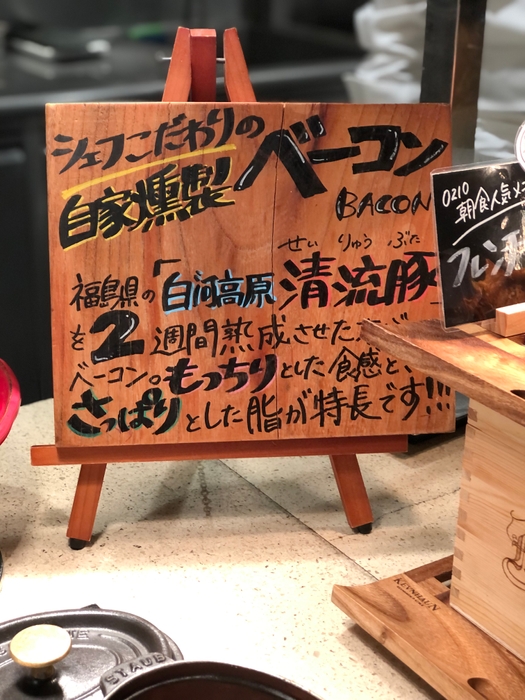 シェフこだわりの
自家燻製
ベーコン
BACON
せい りゅう ぶた
福島県の「白河高原清流豚
を2週間熟成させた
ベーコン。もっちりとした食感と、
さっぱりとした脂が特長です!!!
0210
朝食人気メ
フレン
KEVNHAUN
STAUB